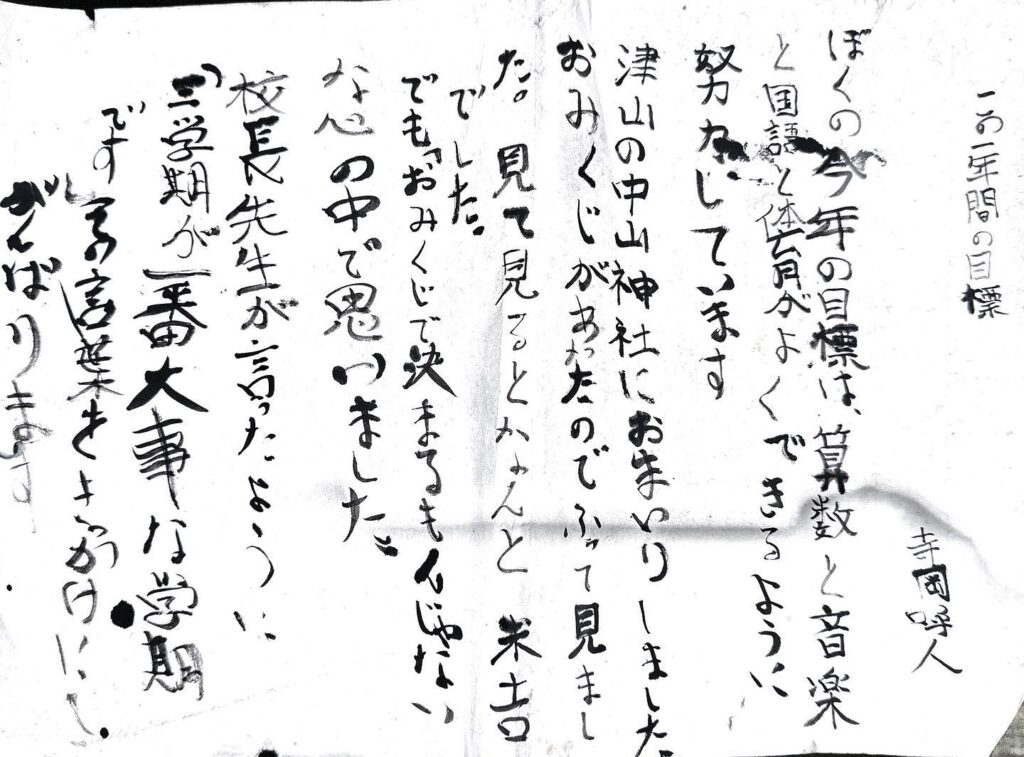 この一年間の目標
寺岡呼人
ぼくの今年の目標は、算数と音楽
と国語と体育がよくできるように
努力しています
津山の中山神社にお生いりしました
おみくじがあったのでふって見まし
た。見て見るとなんと末吉
でした。
でも「おみくじで決まるもんじゃない
な心の中で思いました。
校長先生が言ったように
「三学期が一番大事な学期
です
の言葉を
がんばります